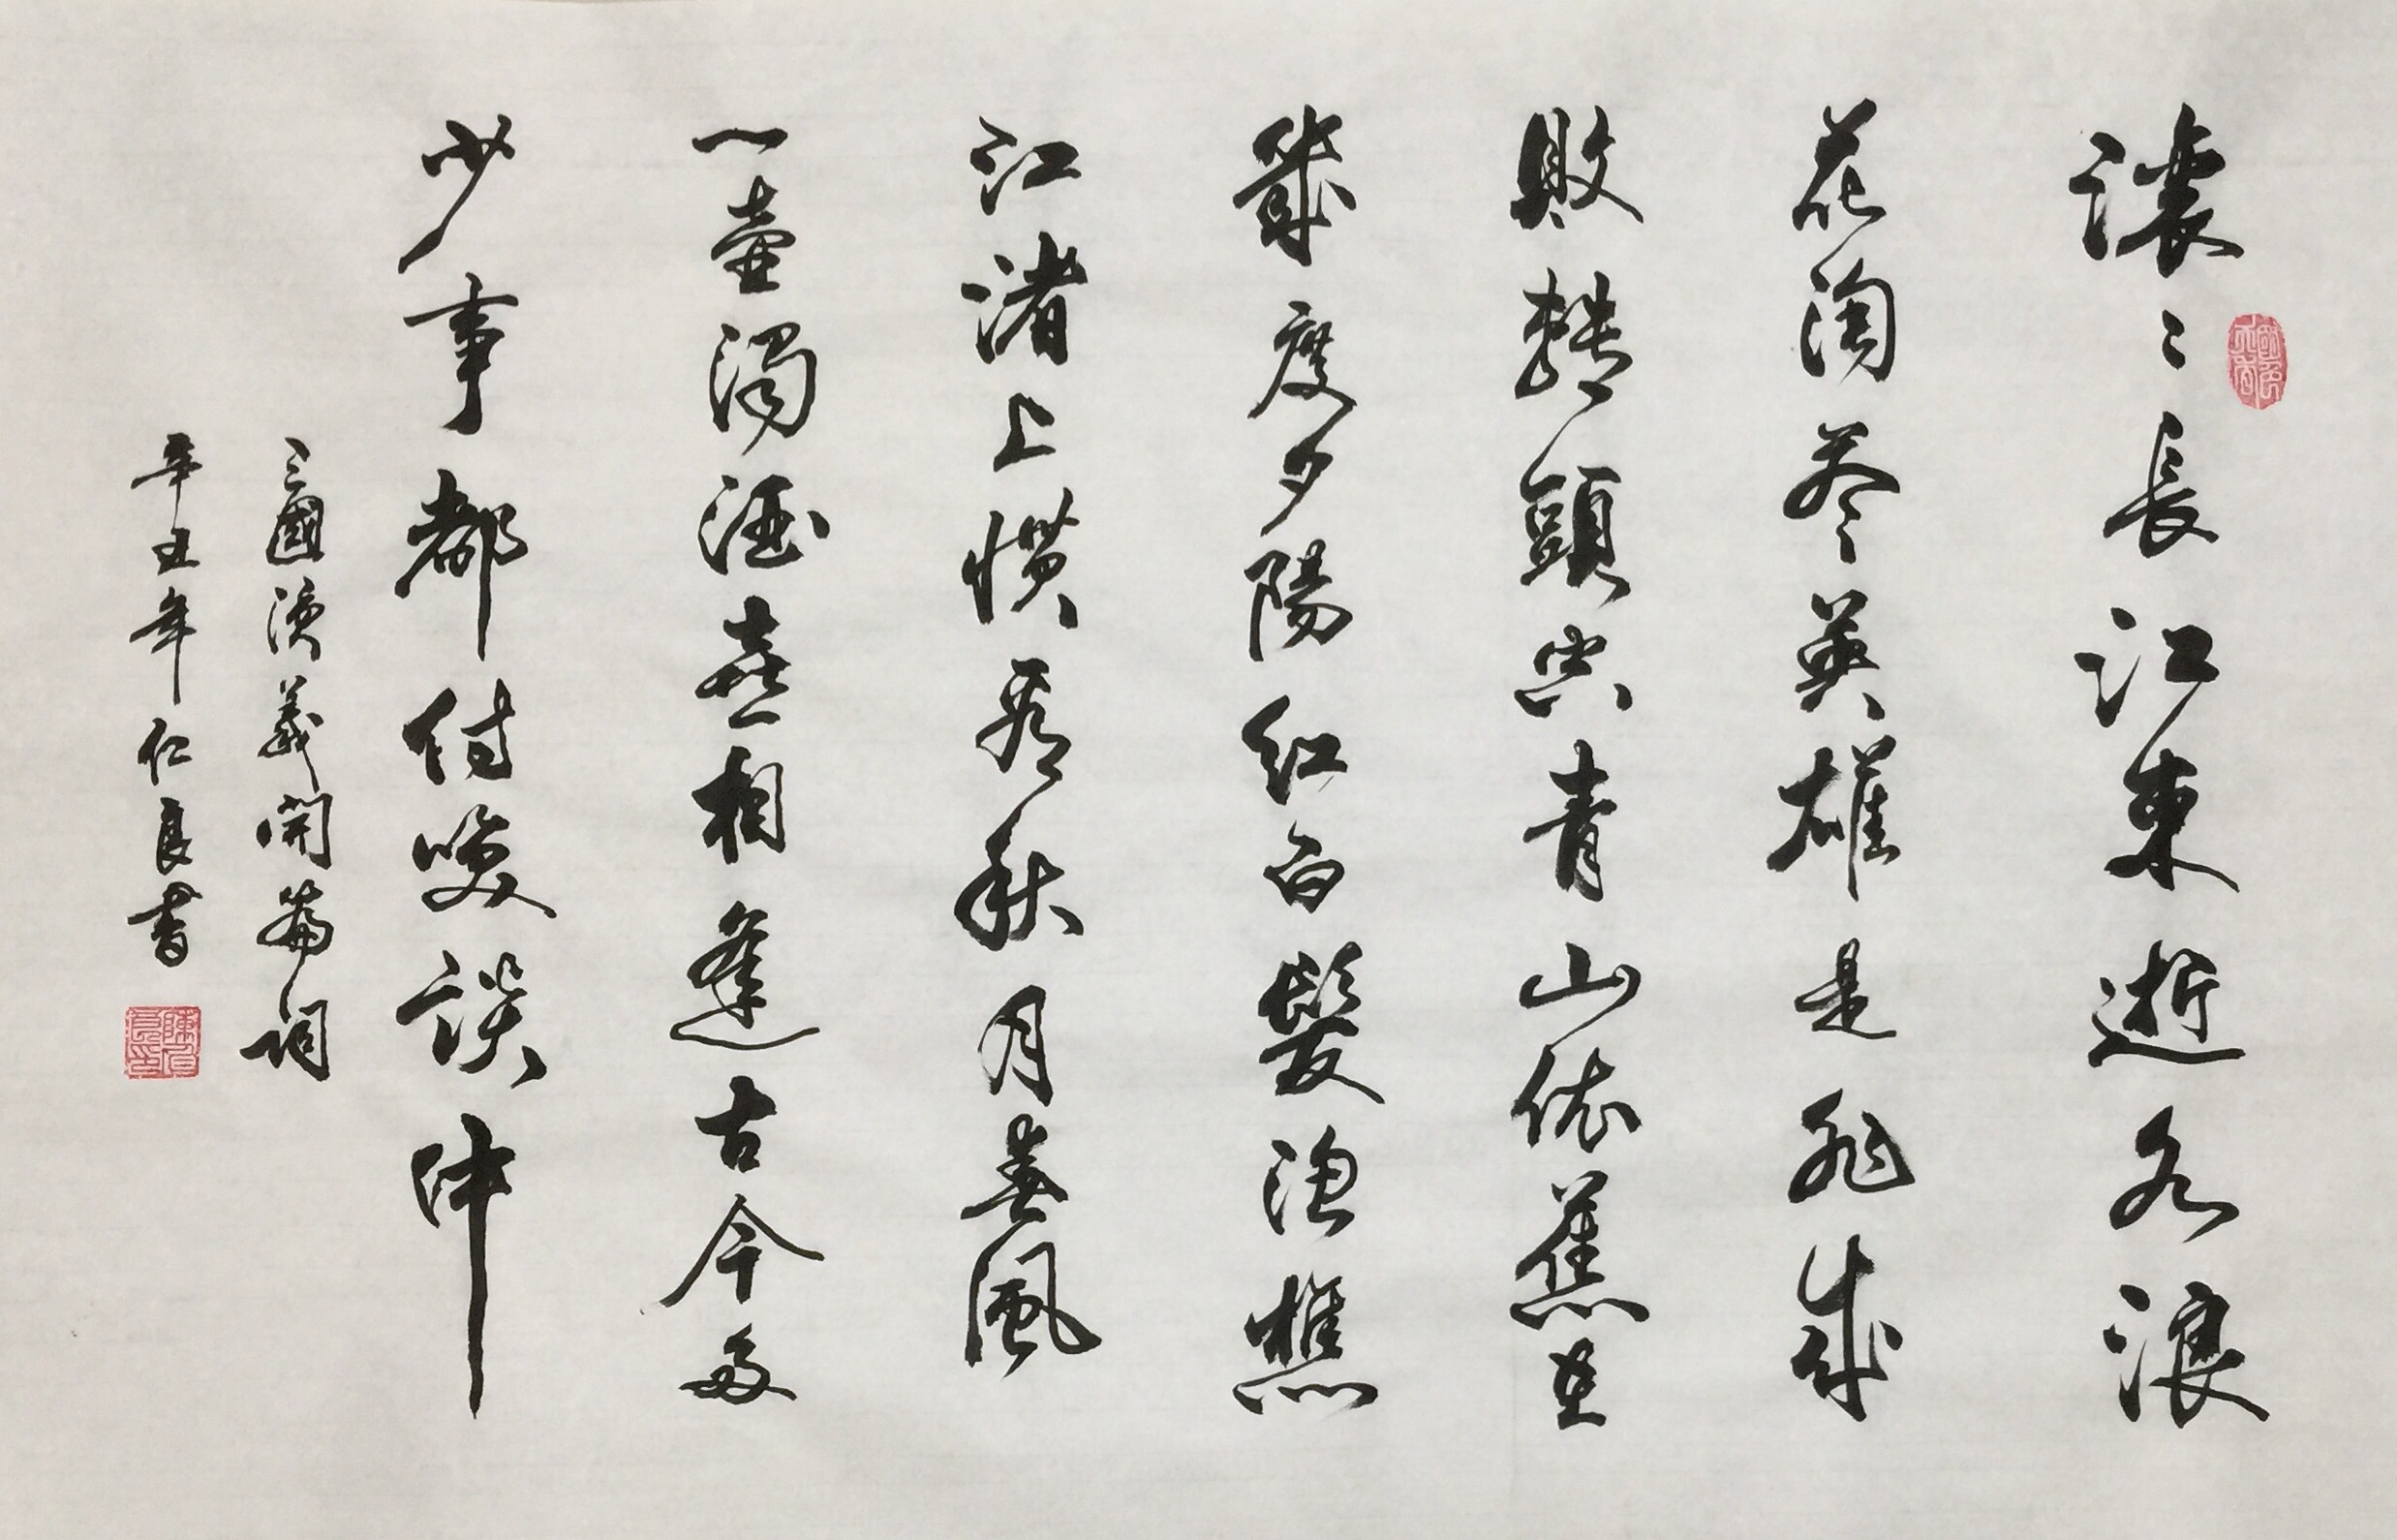 滚〻長江東逝水浪
花淘尽英雄是非成
敗轉頭空青山依舊在
幾度夕陽红白髮渔樵
江渚上惯看秋月春風
一壷濁酒喜相逢古今多
少事都付笑談中
三國演義開篇詞
辛丑年仁良書